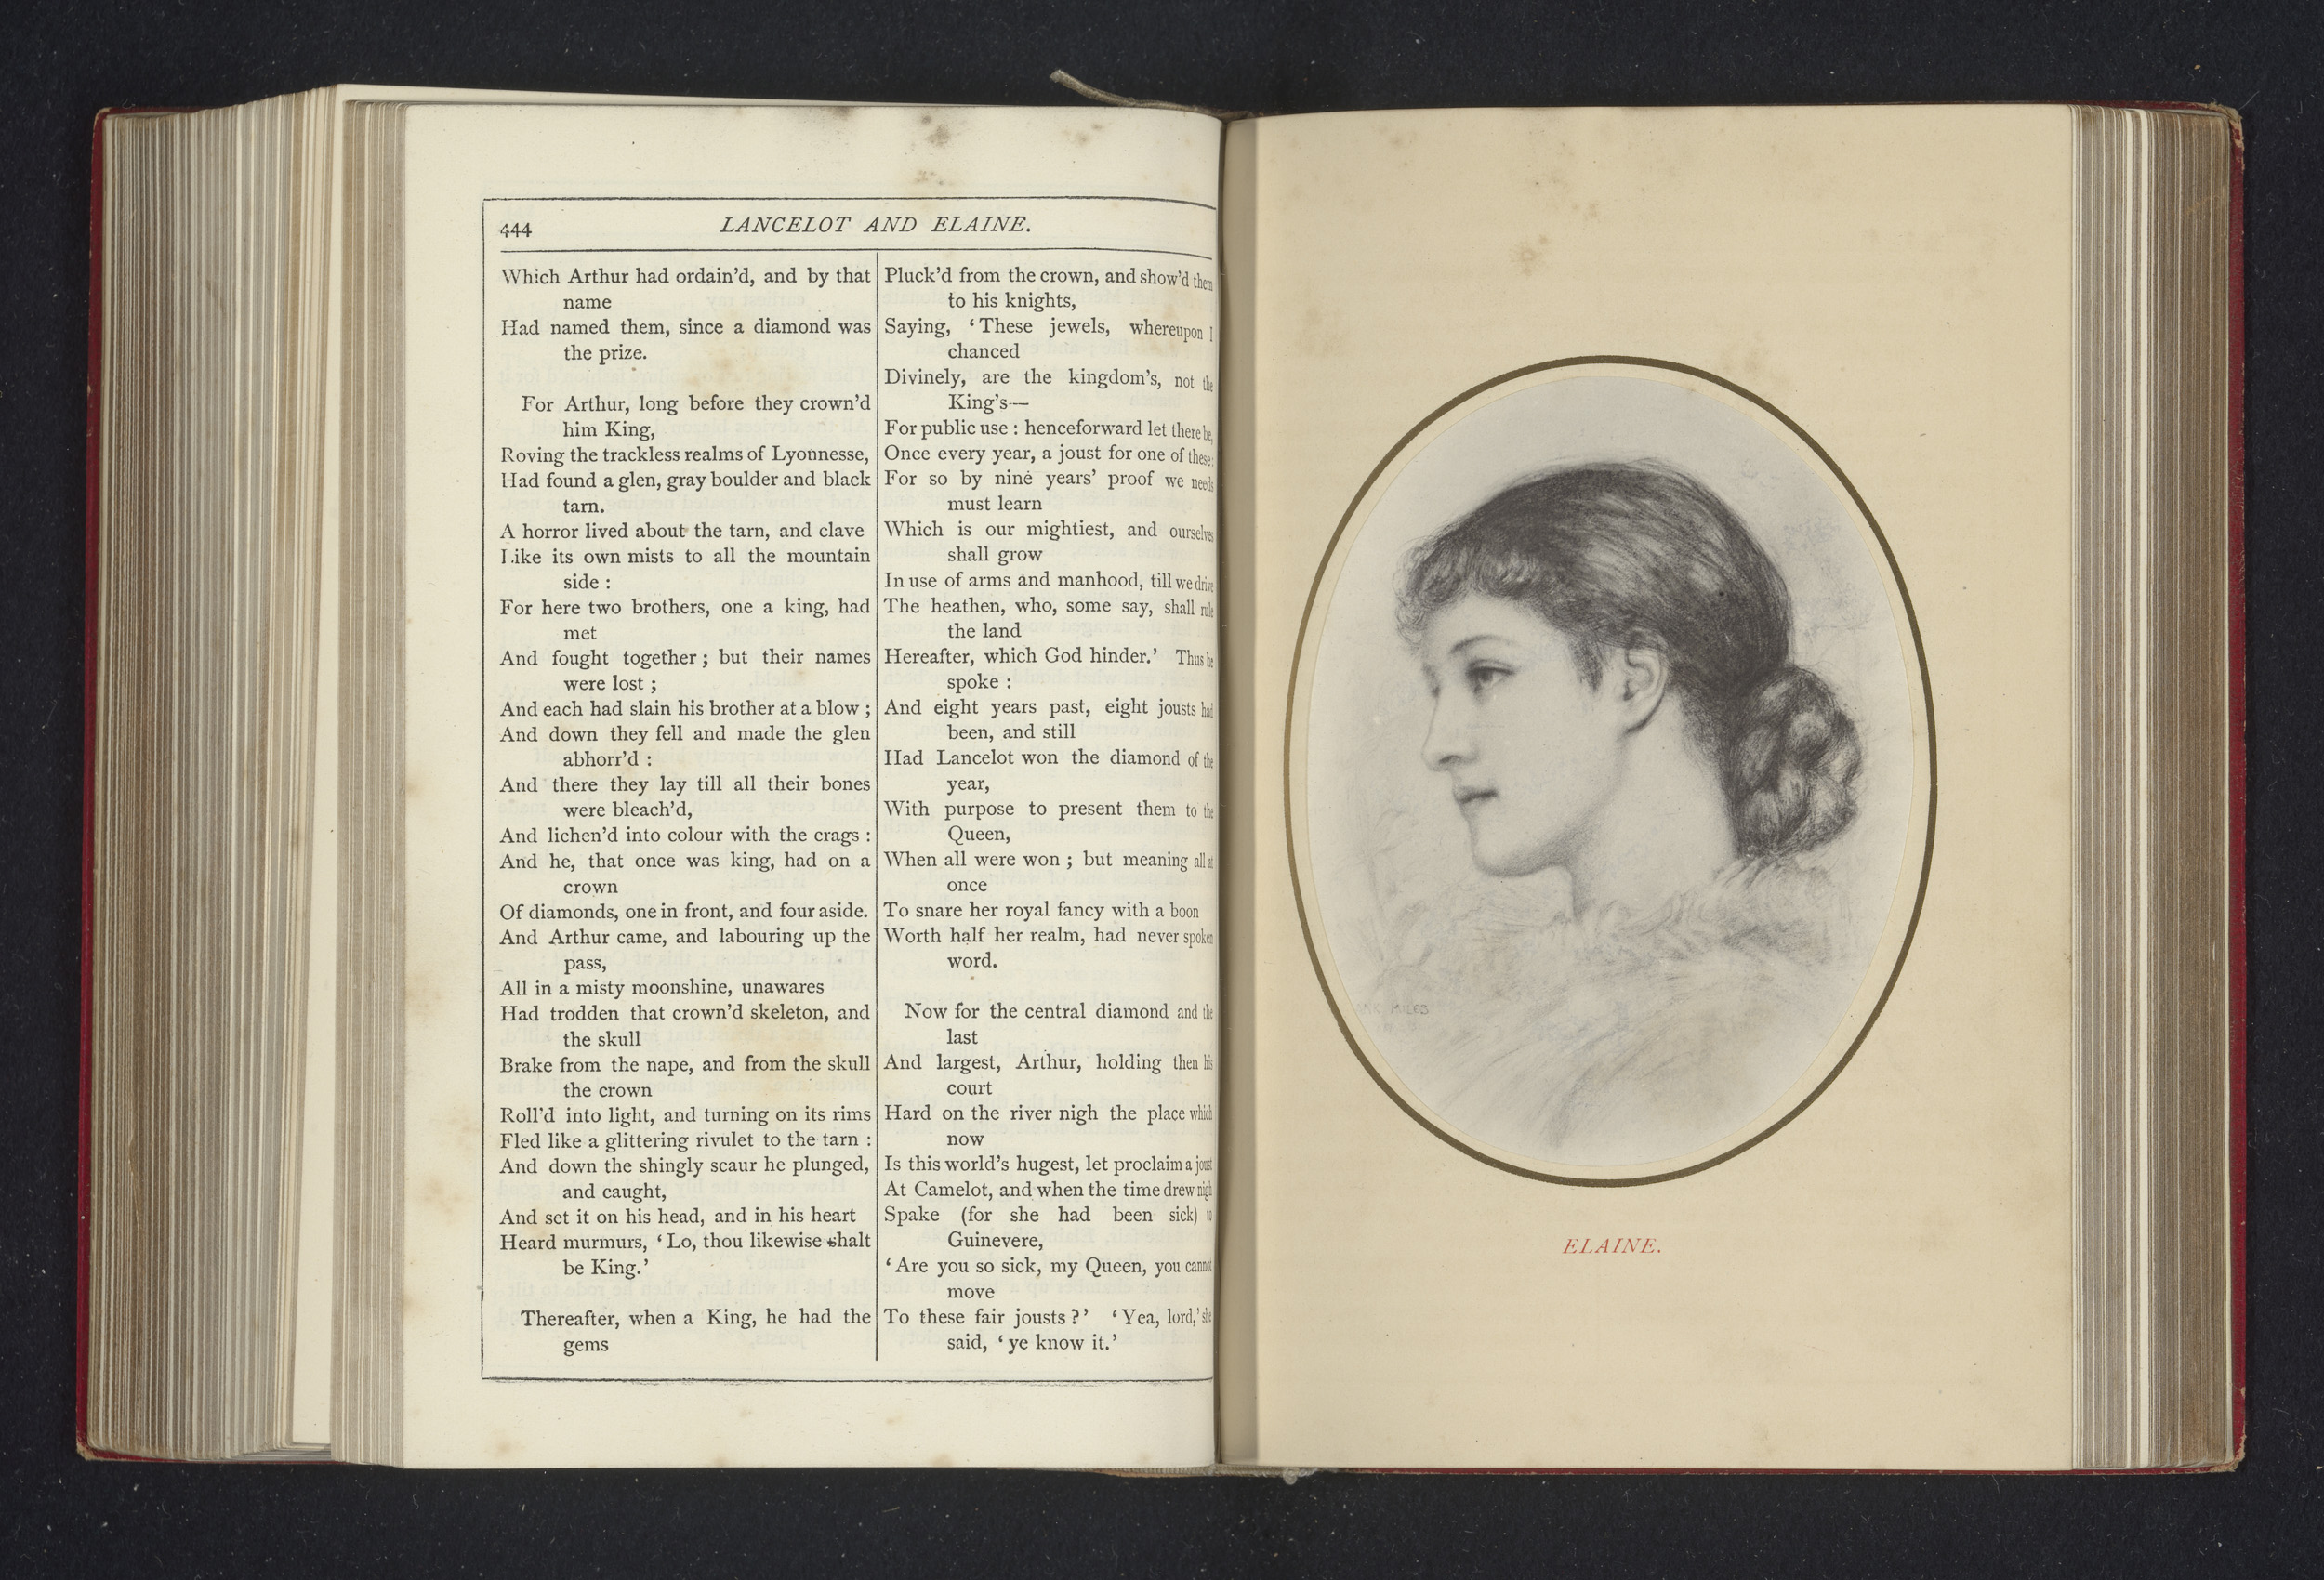 444
LANCELOT AND ELAINE.
Which Arthur had ordain'd, and by that
name
Had named them, since a diamond was
the prize.
For Arthur, long before they crown'd
him King,
Roving the trackless realms of Lyonnesse,
Had found a glen, gray boulder and black
tarn.
A horror lived about the tarn, and clave
Like its own mists to all the mountain
side :
For here two brothers, one a king, had
met
And fought together ; but their names
were lost ;
And each had slain his brother at a blow ;
And down they fell and made the glen
abhorr'd :
And there they lay till all their bones
were bleach'd,
And lichen'd into colour with the crags :
And he, that once was king, had on a
crown
Of diamonds, one in front, and four aside.
And Arthur came, and labouring up the
pass,
All in a misty moonshine, unawares
Had trodden that crown'd skeleton, and
the skull
Brake from the nape, and from the skull
the crown
Roll'd into light, and turning on its rims
Fled like a glittering rivulet to the tarn :
And down the shingly scaur he plunged,
and caught,
And set it on his head, and in his heart
Heard murmurs, ‘Lo, thou likewise shalt
be King.’
Thereafter, when a King, he had the
gems
Pluck'd from the crown, and show'd them
to his knights,
Saying, ‘These jewels, whereupon I
chanced
Divinely, are the kingdom's, not the
King's—
For public use : henceforward let there be,
Once every year, a joust for one of these :
For so by nine years' proof we needs
must learn
Which is our mightiest, and ourselves
shall grow
In use of arms and manhood, till we drive
The heathen, who, some say, shall rule
the land
Hereafter, which God hinder.’ Thus he
spoke :
And eight years past, eight jousts had
been, and still
Had Lancelot won the diamond of the
year,
With purpose to present them to the
Queen,
When all were won ; but meaning all at
once
To snare her royal fancy with a boon
Worth half her realm, had never spoken
word.
Now for the central diamond and the
last
And largest, Arthur, holding then his
court
Hard on the river nigh the place which
now
Is this world's hugest, let proclaim a joust
At Camelot, and when the time drew nigh
Spake (for she had been sick) to
Guinevere,
‘Are you so sick, my Queen, you cannot
move
To these fair jousts ?’ ‘Yea, lord,’ she
said, ‘ye know it.’
MILES
ELAINE.